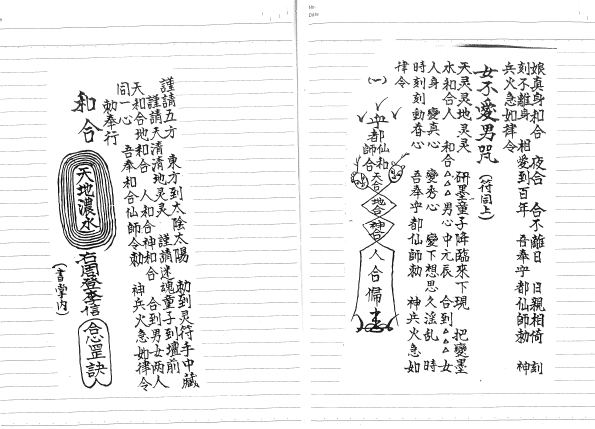 娘真身和合　夜合　合不離日　日親相倚　刻
刻不離身　相愛到百年　吾奉孚都仙師勅　神
兵火急如律令
女不愛男咒（符同上）
天灵灵地灵灵　研墨童子降臨來下現　把變墨
水和合人　和合△△△男心中元辰　合到△△△女
人身　變真心　變秀心　變下想思久淫乱　時
時刻刻動春心　吾奉孚都仙師勅　神兵火急如
律令
(一)
都仙和
師合
天合
地合
神合
人合備
謹請五方　東方到太陰太陽　勅到灵符手中藏
謹請天清清地灵灵　謹請迷魂童子到壇前
天和合地和合　人和合神和合　合到男女两人
同一心　吾奉和合仙師令勅　神兵火急如律令
勅奉行
和合
天地濃水
右周登奉信
(書掌内)
合忌罡訣人